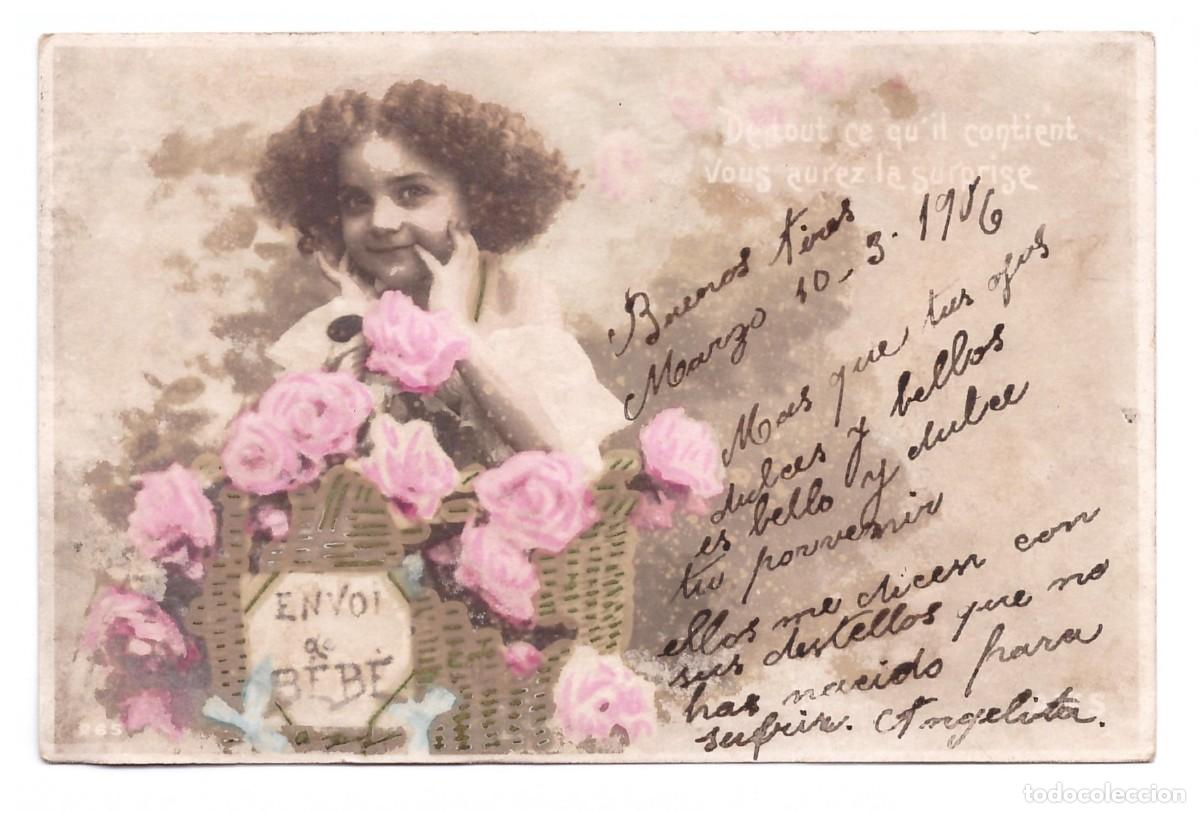 De tout ce qu'il contient
Vous aurez la surprise
Buenos Aires
Marzo 10-3-1906
Mas que tus ojos
dulces y bellos
es bello y dulce
tu porvenir
ellos me dicen con
sus destellos que no
has nacido para
sufrir. Angelita.
ENVOI
de
BÉBÉ
265
todocoleccion